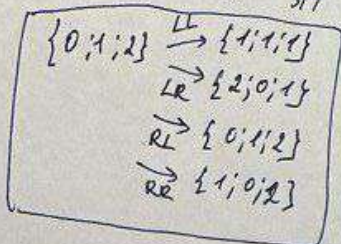 {0;1;2} LL→ {1;1;1}
LR→ {2;0;1}
RL→ {0;1;2}
RR→ {1;0;2}